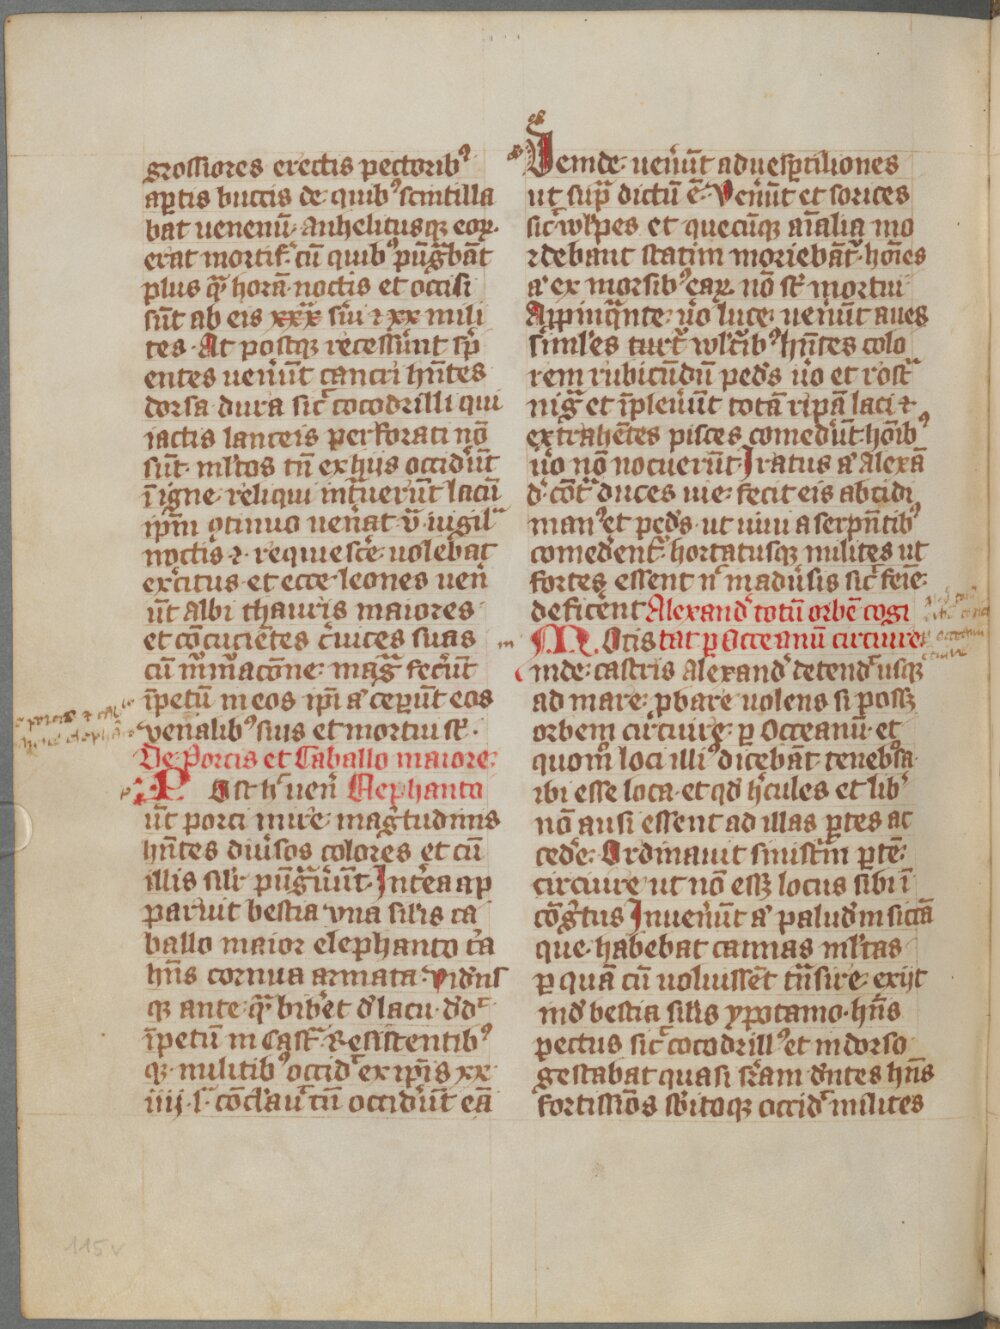 grossiores erectis pectorib⁹
aꝑtis buccis de quib⁹ scintilla
bat uenenū· anhelitusqꝫ eoꝝ·
erat mortif̄· cū quib⁹ pūgͣbāt
plus qͣ̄ horā noctis et occisi
sūt ab eis xxx s̄ui ⁊ xx mili
tes· At postqꝫ recessūnt sꝑ
entes uen̄ūt cancri hn̄tes
dorsa dura sic̄ cocodrilli qui
iactis lanceis perforati nō
sūt· ml̄tos tn̄ ex hijs occid̄ūt
ī igne· reliqui int̄uerūt lacū
ip̄m ꝯtinuo uen̄at v̄ iugil
noctis ⁊· requiesc̄e uolebat
exc̄itus· et ecce· leones uen̄
ūt albi thauris maiores
et cōcuciētes c̄uices suas
cū mͣmacōne· magͣ fec̄ūt
īpetū in eos ip̄i aͥ ceꝑūt eos
venalib⁹ suis et mortui st̄·
De Porcis et Caballo maiore·
Post hͨ uen̄ Elephanto
ūt porci mire magͥtudinis
hn̄tes diūsos colores et cū
illis sil̄r pūgͣūūt· Int̄ea ap
paruit bestia vna sil̄is ca
ballo maior elephanto t̄ia
hn̄s cornua armata· vid̄nſ
qꝫ ante qͣ̄ bib̄et d̄ lacu· d̄dͭ
īpetū in castͬ· Resistentib⁹
qꝫ militib⁹ occid̄ ex ip̄is xx
iiij· ſ· cōcl̄auͭ tū occid̄ūt eā
Deinde· uen̄ūt ad uesꝑtiliones
ut supͣ dictū ē· Ven̄ūt et sorices
sic̄ wl̄pes et quecūqꝫ aīalia mo
rdebant statim moriebāt̄· hoīes
aͥ ex morsib⁹ eaꝝ nō st̄ mortui
Aꝓpinqͣnte· u̇o luce· uen̄ūt aues
s̄iml̄es turt̄ wl̄t̄ib⁹ hn̄tes colo
rem rubicūdū ped̄s u̇o et rostͣ
nigͣ et īplen̄ūt totā ripā laci ⁊
extrahētes pisces comed̄ūt· hōib⁹
u̇o nō nocuerūt· Iratus aͥ Alexā
d̄· cōtͣ duces uie· fecit eis abcidi
man⁹ et ped̄s· ut uiui a serpn̄tib⁹
comed̄ent̄· hortatusqꝫ milites ut
fortes essent nͨ mad̄usis sic̄ feīe·
defic̄ent Alexand̄ totū orbē cogi
Motis tat ꝑ Occeanū circuire·
inde· castris Alexand̄ detend̄ usqꝫ
ad mare· ꝓbare uolens si possꝫ
orbem cir̄cuire· ꝑ Occeanū· et
quom̊ loci illi⁹ dicebāt tenebͦsa
ibi esse loca· et qd̄ hc̄ules et lib̄
nō ausi essent ad illas ꝑtes ac
ced̄e· Ordinauit sinistͣm ꝑtē·
circuire ut nō essꝫ locus sibi ī
cōgͥtus Inuen̄ūt aͥ palud̄m siccā
que· habebat cannas ml̄tas
ꝑ quā cū uoluissēt tͣ̄sire· exijt
ind̄ bestia sil̄is ypotamo· hn̄s
pectus sic̄ cocodrill⁹ et in dorso
gestabat quasi s̄ram d̄ntes hn̄s
fortissīos s̄bitoqꝫ occid̄ milites
115v